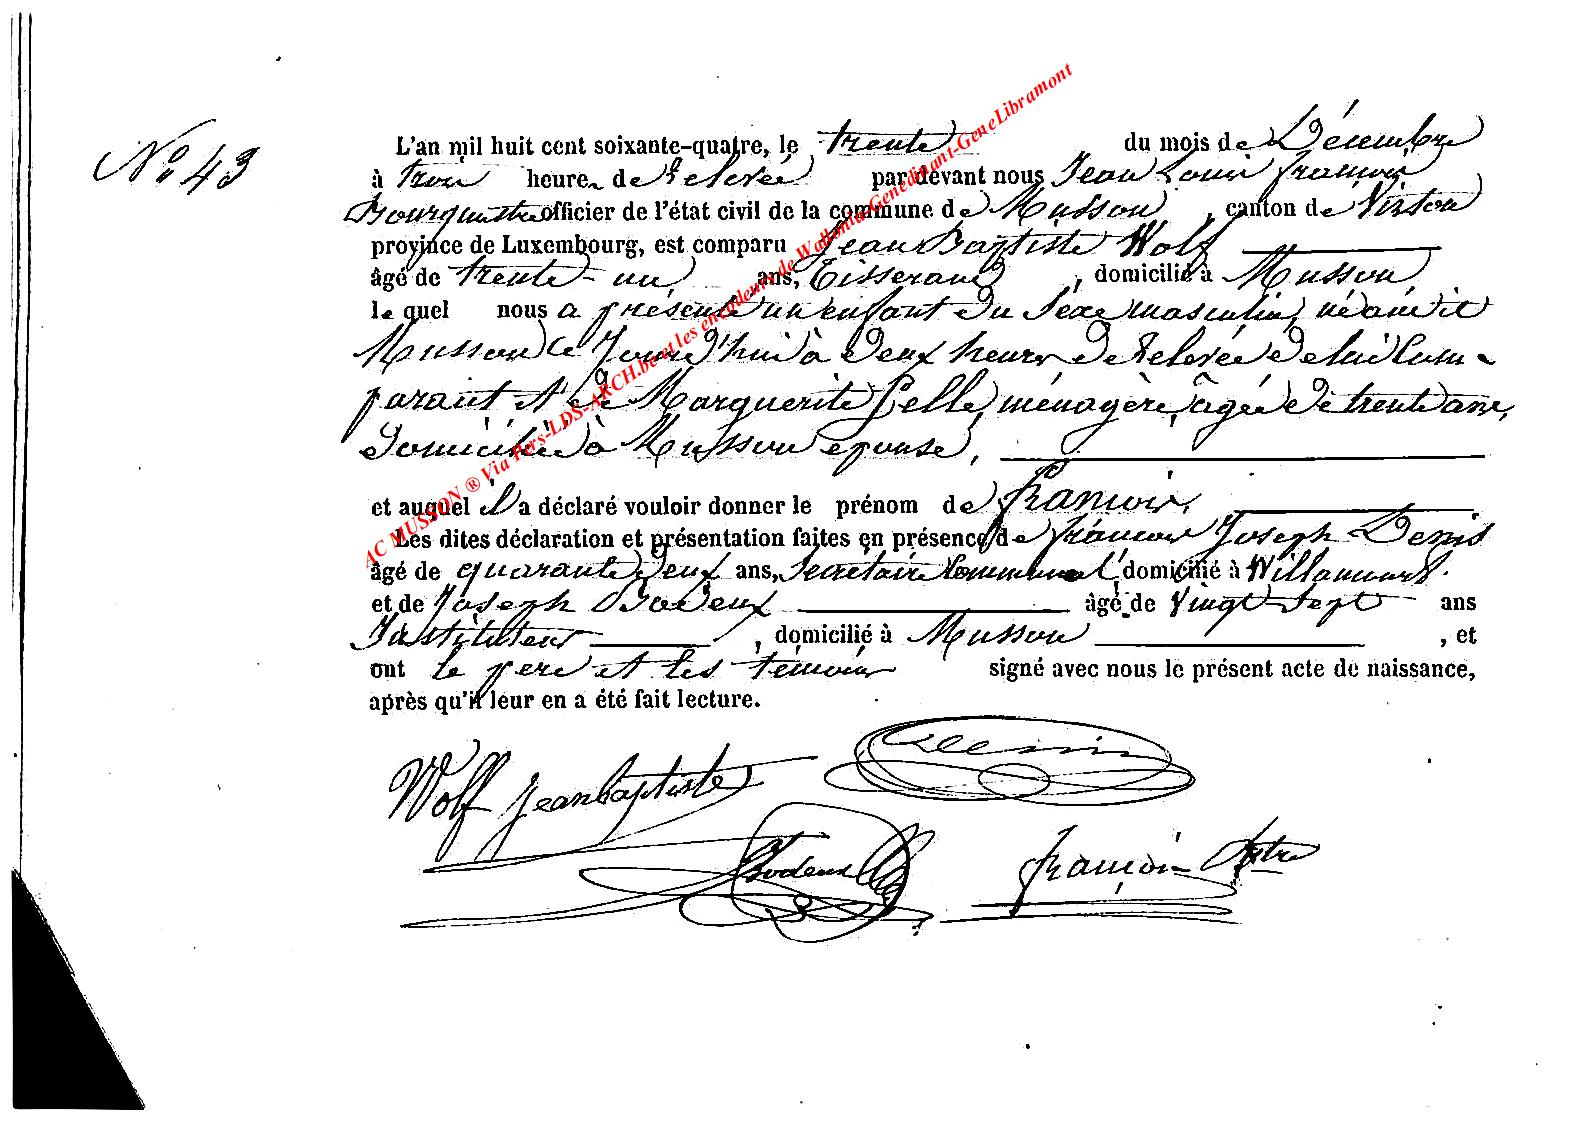 N° 43
L'an mil huit cent soixante-quatre, le trente du mois de Décembre
à trois heures de relevée par devant nous Jean Louis françois
officier de l'état civil de la commune de Musson, canton de Virton
province de Luxembourg, est comparu Jean Baptiste Wolf
âgé de trente-un ans, Tisserand, domicilié à Musson,
lequel nous a présenté un enfant du sexe masculin, né au dit
Musson ce jourd'hui à deux heures de relevée de lui Com-
parant et de Marguerite Pelle, ménagère, agée de trente ans,
domiciliée à Musson epouse,
et auquel il a déclaré vouloir donner le prénom de françois,
Les dites déclaration et présentation faites en présence de françois Joseph Denis
âgé de quarante deux ans, Secretaire Communal, domicilié à Willancourt.
et de Joseph Bodeux âgé de vingt-sept ans
Instituteur, domicilié à Musson, et
ont le pere et les témoins signé avec nous le présent acte de naissance,
après qu'il leur en a été fait lecture.
Wolf jeanbaptiste
Bodeux
françois
AC MUSSON ® Via Pers-LDS-ARCH.be et les encodeurs de Wallonia-Genedinant-GeneLibramont